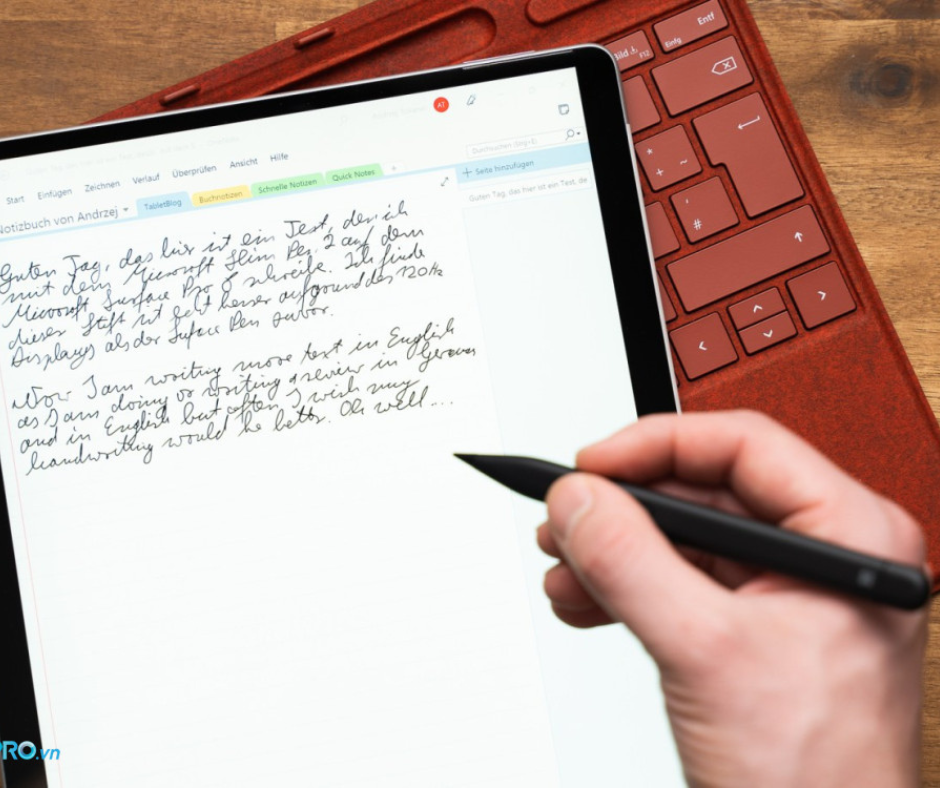 Entf
Einfg
Bild
F12
AT
Start Einfügen Zeichnen Verlauf Überprüfen Ansicht Hilfe
Durchsuchen (Strg+E)
Notizbuch von Andrzej
TabletBlog
Buchnotizen
Schnelle Notizen
Quick Notes
+
+ Seite hinzufügen
Guten Tag, das hier ist ein Text, de
Guten Tag, das hier ist ein Test, den ich
mit dem Microsoft Slim Pen 2 auf dem
Microsoft Surface Pro 8 schreibe. Ich finde
dieser Stift ist echt besser aufgrund des 120Hz
Displays als der Suface Pen zuvor.
Now I am writing more text in English
as I am doing or writing a review in German
and in English but often I wish my
handwriting would be better. Oh well...
*
~
+
'
#
PRO.vn